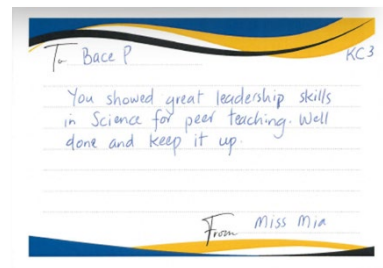 To Bace P
KC3
You showed great leadership skills
in Science for peer teaching. Well
done and keep it up.
From Miss Mia